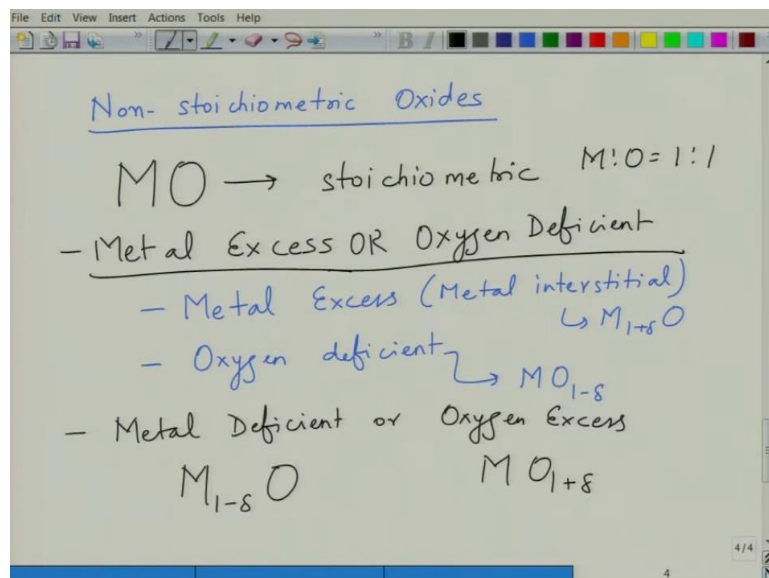 File Edit View Insert Actions Tools Help
B I
Non-stoichiometric Oxides
MO → stoichiometric M:O=1:1
- Metal Excess OR Oxygen Deficient
- Metal Excess (Metal interstitial)
↳ M₁₊δO
- Oxygen deficient
↳ MO₁₋δ
- Metal Deficient or Oxygen Excess
M₁₋δO MO₁₊δ
4/4
4